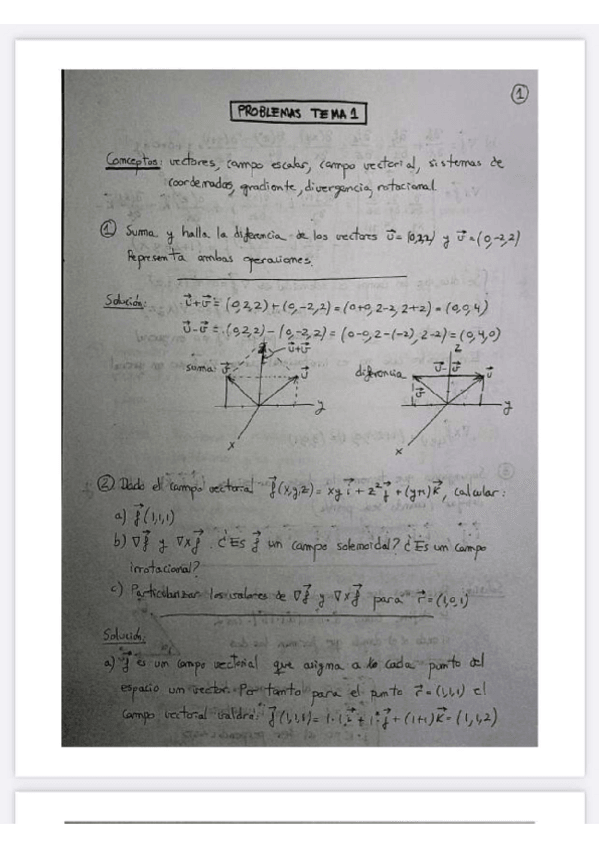 1
PROBLEMAS TEMA 1
Conceptos: vectores, campo escalar, campo vectorial, sistemas de
coordenadas, gradiente, divergencia, rotacional.
① Suma y halla la diferencia de los vectores u⃗ = (0,2,2) y v⃗ = (0,-2,2)
Representa ambas operaciones.
Solución: u⃗+v⃗ = (0,2,2)+(0,-2,2)=(0+0,2-2,2+2)=(0,0,4)
u⃗-v⃗ = (0,2,2)-(0,-2,2)=(0-0,2-(-2),2-2)=(0,4,0)
z u⃗+v⃗ z
suma: v⃗ u⃗ diferencia u⃗-v⃗ u⃗
v⃗
y y
x x
② Dado el campo vectorial f⃗(x,y,z)= xy i⃗ + z² j⃗ + (y+1) k⃗, calcular:
a) f⃗(1,1,1)
b) ∇f⃗ y ∇×f⃗. ¿Es f⃗ un campo solenoidal? ¿Es un campo
irrotacional?
c) Particularizar los valores de ∇f⃗ y ∇×f⃗ para r⃗=(1,0,1)
Solución:
a) f⃗ es un campo vectorial que asigna a cada punto del
espacio un vector. Por tanto para el punto r⃗=(1,1,1) el
campo vectorial valdrá: f⃗(1,1,1)= 1·1 i⃗ + 1² j⃗ + (1+1) k⃗ = (1,1,2)